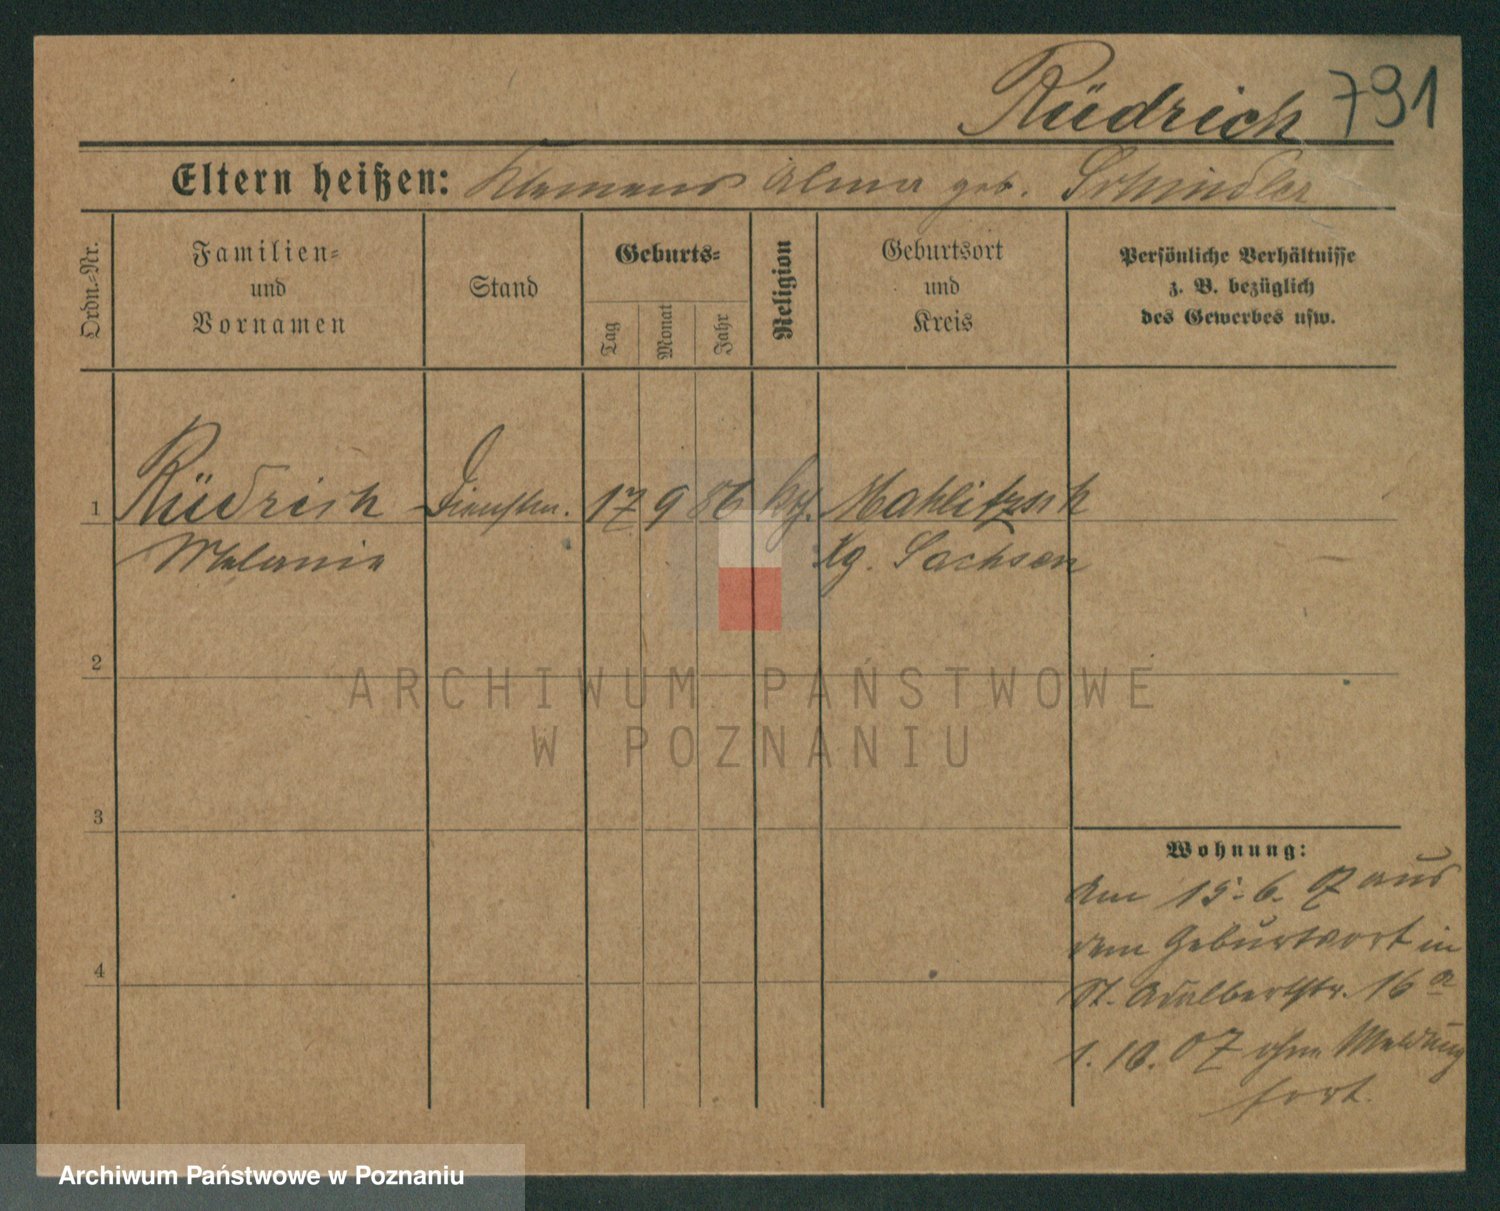 Rüdrich 791
Eltern heißen: Klemens Alma geb. Schindler
Ordn.-Nr.
Familien-
und
Vornamen
Stand
Geburts-
Tag
Monat
Jahr
Religion
Geburtsort
und
Kreis
Persönliche Verhältnisse
z. B. bezüglich
des Gewerbes usw.
1 Rüdrich Dienstm. 17 9 86 Mahlitzsch
Melanie Kg. Sachsen
2
3
4
Wohnung:
Am 15. 6. 07 aus
dem Geburtsort in
St. Adalbertstr. 16 a
1. 10. 07 ohne Meldung
fort.
ARCHIWUM PAŃSTWOWE
W POZNANIU
Archiwum Państwowe w Poznaniu